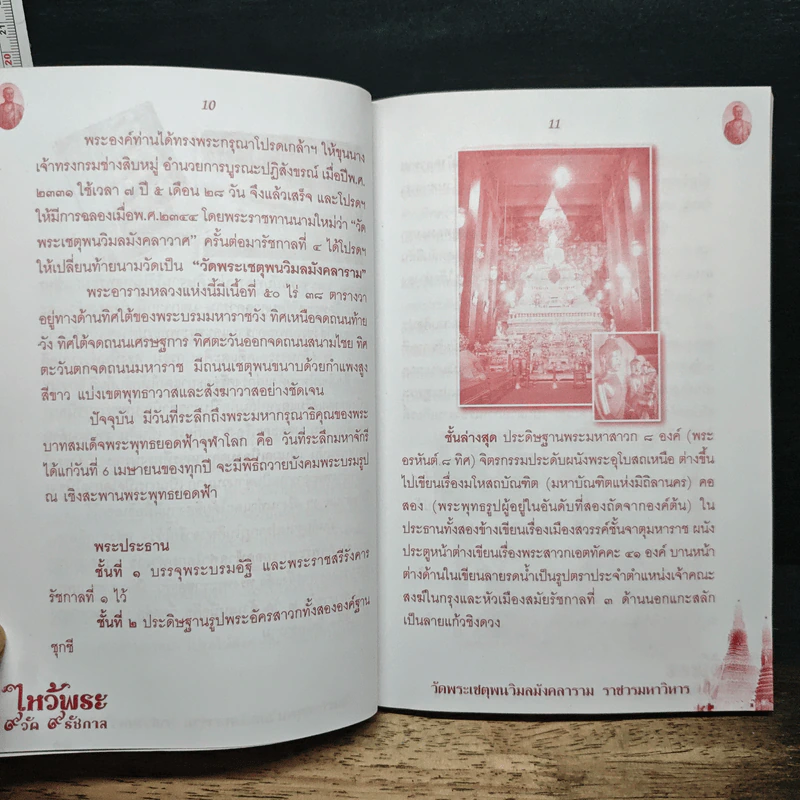 10
พระองค์ท่านได้ทรงพระกรุณาโปรดเกล้าฯ ให้ขุนนาง
เจ้าทรงกรมช่างสิบหมู่ อำนวยการบูรณะปฏิสังขรณ์ เมื่อปีพ.ศ.
๒๓๓๑ ใช้เวลา ๗ ปี ๕ เดือน ๒๘ วัน จึงแล้วเสร็จ และโปรดฯ
ให้มีการฉลองเมื่อพ.ศ.๒๓๔๔ โดยพระราชทานนามใหม่ว่า “วัด
พระเชตุพนวิมลมังคลาวาศ” ครั้นต่อมารัชกาลที่ ๔ ได้โปรดฯ
ให้เปลี่ยนท้ายนามวัดเป็น “วัดพระเชตุพนวิมลมังคลาราม”
พระอารามหลวงแห่งนี้มีเนื้อที่ ๕๐ ไร่ ๓๘ ตารางวา
อยู่ทางด้านทิศใต้ของพระบรมมหาราชวัง ทิศเหนือจดถนนท้าย
วัง ทิศใต้จดถนนเศรษฐการ ทิศตะวันออกจดถนนสนามไชย ทิศ
ตะวันตกจดถนนมหาราช มีถนนเชตุพนขนาบด้วยกำแพงสูง
สีขาว แบ่งเขตพุทธาวาสและสังฆาวาสอย่างชัดเจน
ปัจจุบัน มีวันที่ระลึกถึงพระมหากรุณาธิคุณของพระ
บาทสมเด็จพระพุทธยอดฟ้าจุฬาโลก คือ วันที่ระลึกมหาจักรี
ได้แก่วันที่ ๖ เมษายนของทุกปี จะมีพิธีถวายบังคมพระบรมรูป
ณ เชิงสะพานพระพุทธยอดฟ้า
พระประธาน
ชั้นที่ ๑ บรรจุพระบรมอัฐิ และพระราชสรีรังคาร
รัชกาลที่ ๑ ไว้
ชั้นที่ ๒ ประดิษฐานรูปพระอัครสาวกทั้งสององค์ฐาน
ชุกชี
ไหว้พระ
๙ วัด ๙ รัชกาล
11
ชั้นล่างสุด ประดิษฐานพระมหาสาวก ๘ องค์ (พระ
อรหันต์ ๘ ทิศ) จิตรกรรมประดับผนังพระอุโบสถเหนือ ต่างขึ้น
ไปเขียนเรื่องมโหสถบัณฑิต (มหาบัณฑิตแห่งมิถิลานคร) คอ
สอง (พระพุทธรูปผู้อยู่ในอันดับที่สองถัดจากองค์ต้น) ใน
ประธานทั้งสองข้างเขียนเรื่องเมืองสวรรค์ชั้นจาตุมหาราช ผนัง
ประตูหน้าต่างเขียนเรื่องพระสาวกเอตทัคคะ ๔๑ องค์ บานหน้า
ต่างด้านในเขียนลายรดน้ำเป็นรูปตราประจำตำแหน่งเจ้าคณะ
สงฆ์ในกรุงและหัวเมืองสมัยรัชกาลที่ ๓ ด้านนอกแกะสลัก
เป็นลายแก้วชิงดวง
วัดพระเชตุพนวิมลมังคลาราม ราชวรมหาวิหาร
20
21